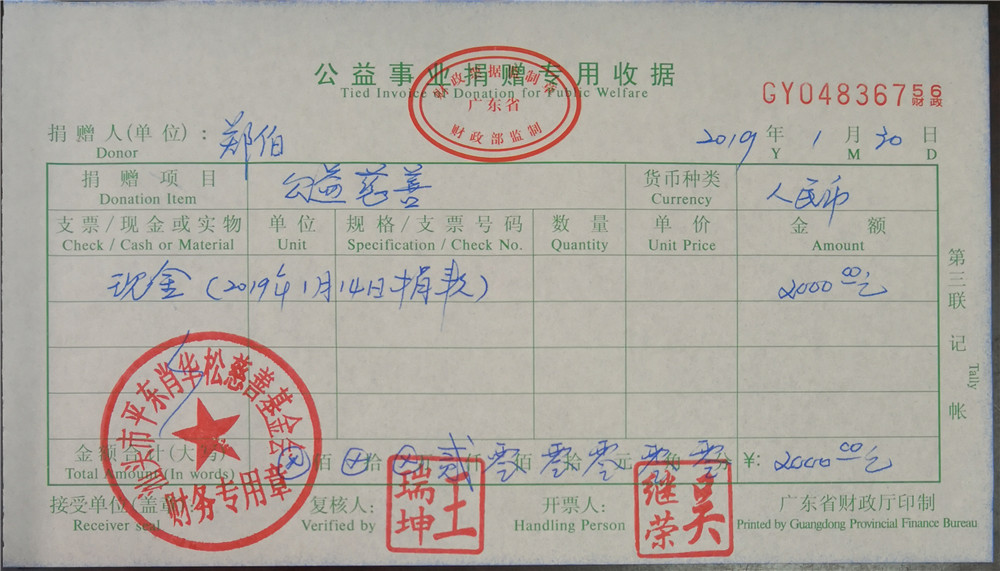 公益事业捐赠专用收据
Tied Invoice of Donation for Public Welfare
财政票据监制章
广东省
财政部监制
GY04836756
财政
捐赠人(单位)： 郑伯
Donor
2019 年 1 月 30 日
Y M D
捐赠项目 公益慈善 货币种类 人民币
Donation Item Currency
支票/现金或实物 单位 规格/支票号码 数量 单价 金额
Check / Cash or Material Unit Specification / Check No. Quantity Unit Price Amount
现金(2019年1月14日捐款) 2000.00元
第三联 记帐
Tally
金额合计(大写) 佰 拾 万 贰 仟 零 佰 零 拾 零 元 零 角 零 分 ¥: 2000.00元
Total Amount (In words)
市平东肖华松慈善基金会
财务专用章
接受单位(盖章): 复核人: 王瑞坤 开票人: 吴继荣 广东省财政厅印制
Receiver seal Verified by Handling Person Printed by Guangdong Provincial Finance Bureau